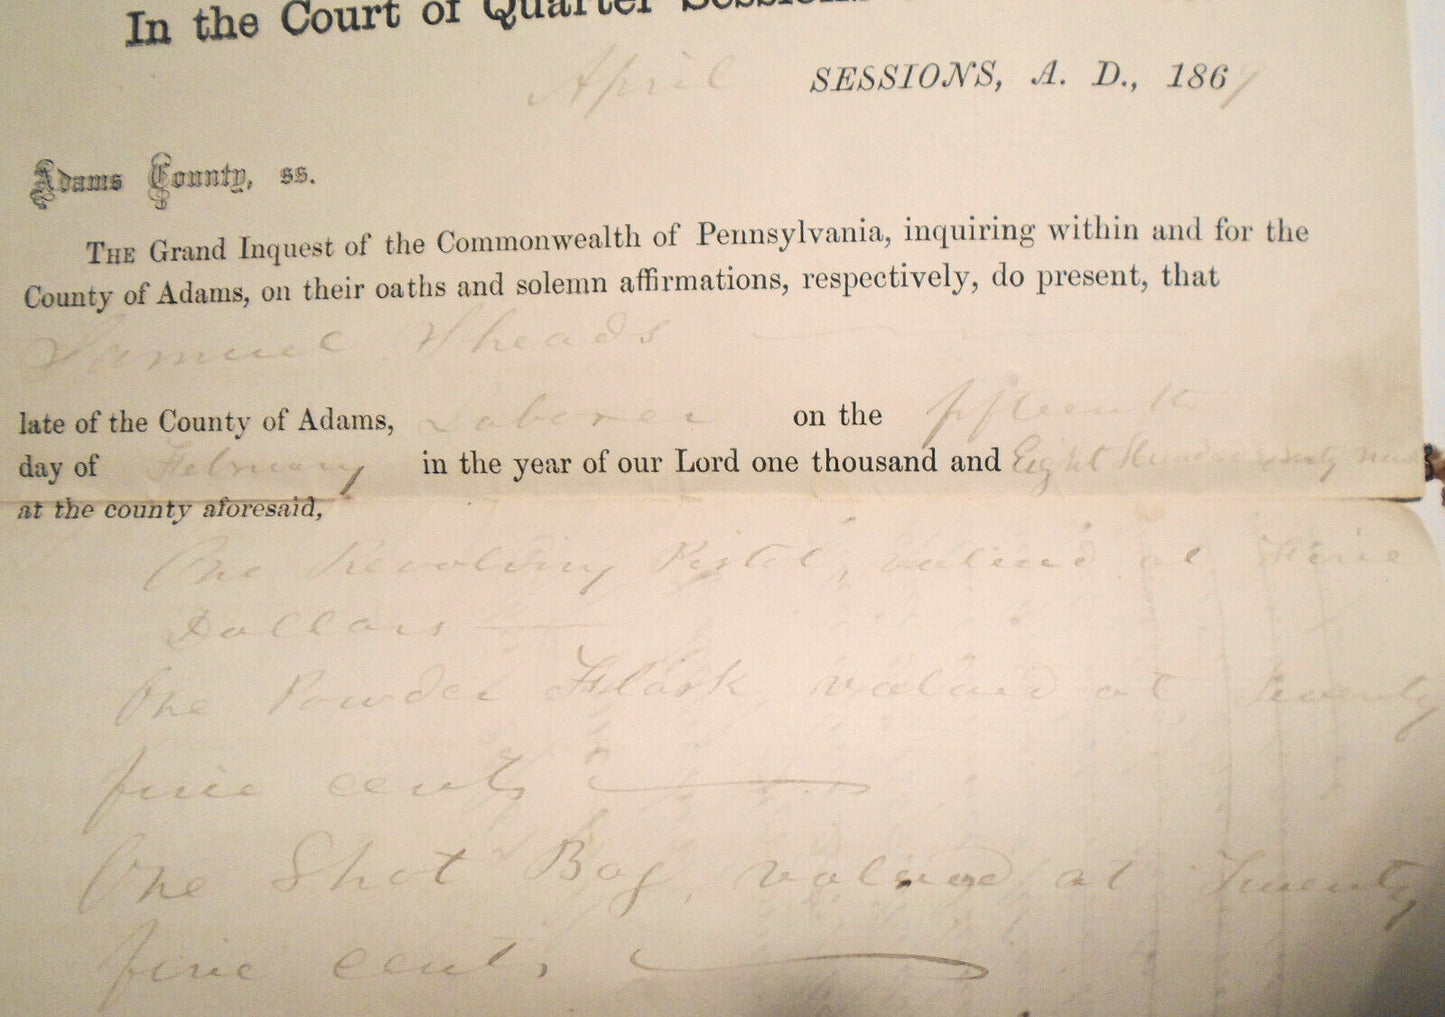 In the Court of Quarter Sessions
April SESSIONS, A. D., 1869
Adams County, ss.
THE Grand Inquest of the Commonwealth of Pennsylvania, inquiring within and for the
County of Adams, on their oaths and solemn affirmations, respectively, do present, that
Samuel Sheads
late of the County of Adams, Laborer on the fifteenth
day of February in the year of our Lord one thousand and Eight Hundred Sixty nine
at the county aforesaid,
One Revolving Pistol, valued at Five
Dollars
One Powder Flask valued at Twenty
five cents
One Shot Bag, valued at Twenty
five cents,